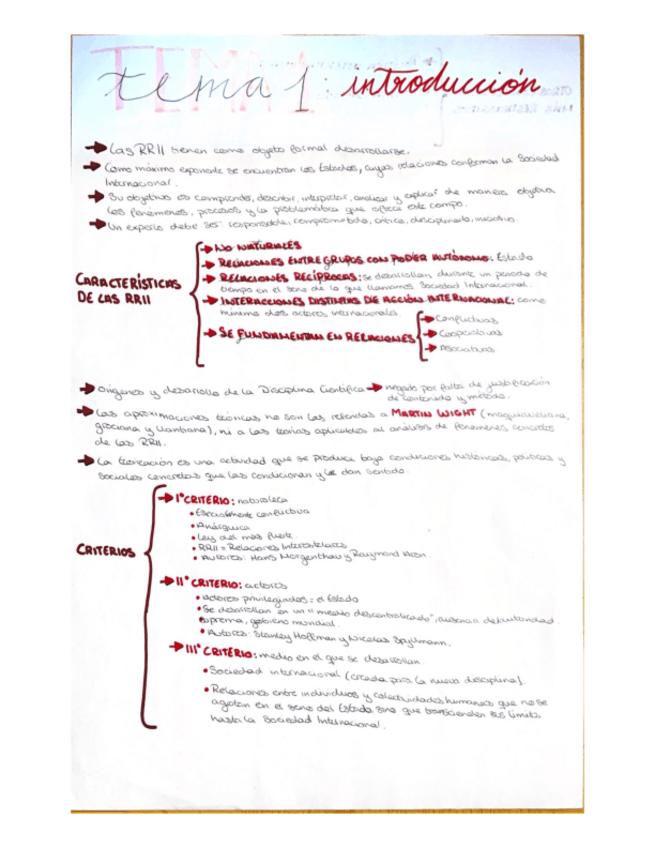 tema 1: introducción
Las RRII tienen como objeto formal desarrollarse.
Como máximo exponente se encuentran los Estados, cuyas relaciones conforman la Sociedad
Internacional.
Su objetivo es comprender, describir, interpretar, analizar y explicar de manera objetiva
los fenómenos, procesos y la problemática que ofrece este campo.
Un experto debe ser: responsable, comprometido, crítico, disciplinado, inventivo.
NO NATURALES
RELACIONES ENTRE GRUPOS CON PODER AUTÓNOMO: Estado
CARACTERÍSTICAS
DE LAS RRII
RELACIONES RECÍPROCAS: se desarrollan durante un periodo de
tiempo en el seno de lo que llamamos Sociedad Internacional.
INTERACCIONES DISTINTAS DE ACCIÓN INTERNACIONAL: como
mínimo dos actores internacionales.
SE FUNDAMENTAN EN RELACIONES
Conflictivas
Cooperativas
Asociativas
Orígenes y desarrollo de la Disciplina Científica
negado por falta de justificación
de contenido y método.
Las aproximaciones teóricas no son las referidas a MARTIN WIGHT (maquiaveliana,
grociana y kantiana), ni a las teorías aplicables al análisis de fenómenos concretos
de las RRII.
La teorización es una actividad que se produce bajo condiciones históricas, políticas y
sociales concretas que las condicionan y le dan sentido.
CRITERIOS
Iº CRITERIO: naturaleza
Esencialmente conflictiva
Anárquica
Ley del más fuerte
RRII = Relaciones Interestatales
Autores: Hans Morgenthau y Raymond Aron.
IIº CRITERIO: actores
Actores privilegiados = el Estado
Se desarrollan en un "medio descentralizado", ausencia de autoridad
suprema, gobierno mundial.
Autores: Stanley Hoffman y Nicolas Spykmann.
IIIº CRITERIO: medio en el que se desarrollan
Sociedad internacional (creada para la nueva disciplina).
Relaciones entre individuos y colectividades humanas que no se
agotan en el seno del Estado sino que transcienden sus límites
hasta la Sociedad Internacional.